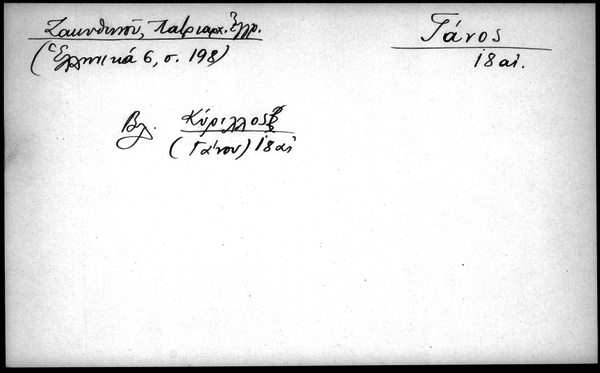 Ζακυθηνοῦ, Πατριαρχ. Ἔγγρ.
(Ἑλληνικά 6, σ. 198)
Γάνος
18 αἰ.
Βλ. Κύριλλος
(Γάνου) 18 αἰ